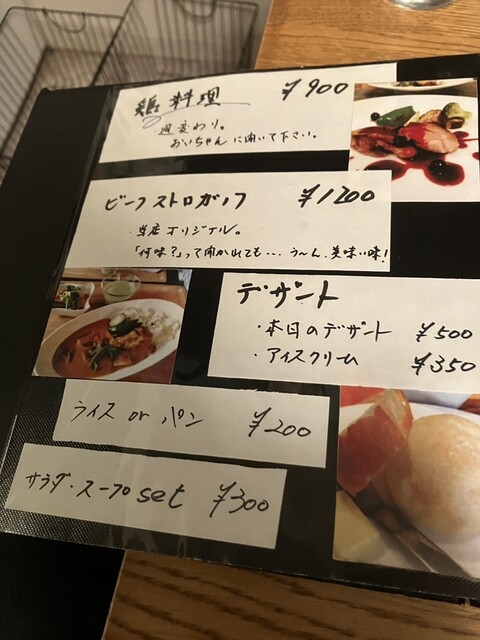 鶏料理 ¥900
週変わり。
おいちゃんに聞いて下さい。
ビーフストロガノフ ¥1200
・当店オリジナル。
「何味?」って聞かれても・・・う〜ん、美味い味!
デザート
・本日のデザート ¥500
・アイスクリーム ¥350
ライス or パン ¥200
サラダ・スープ set ¥300